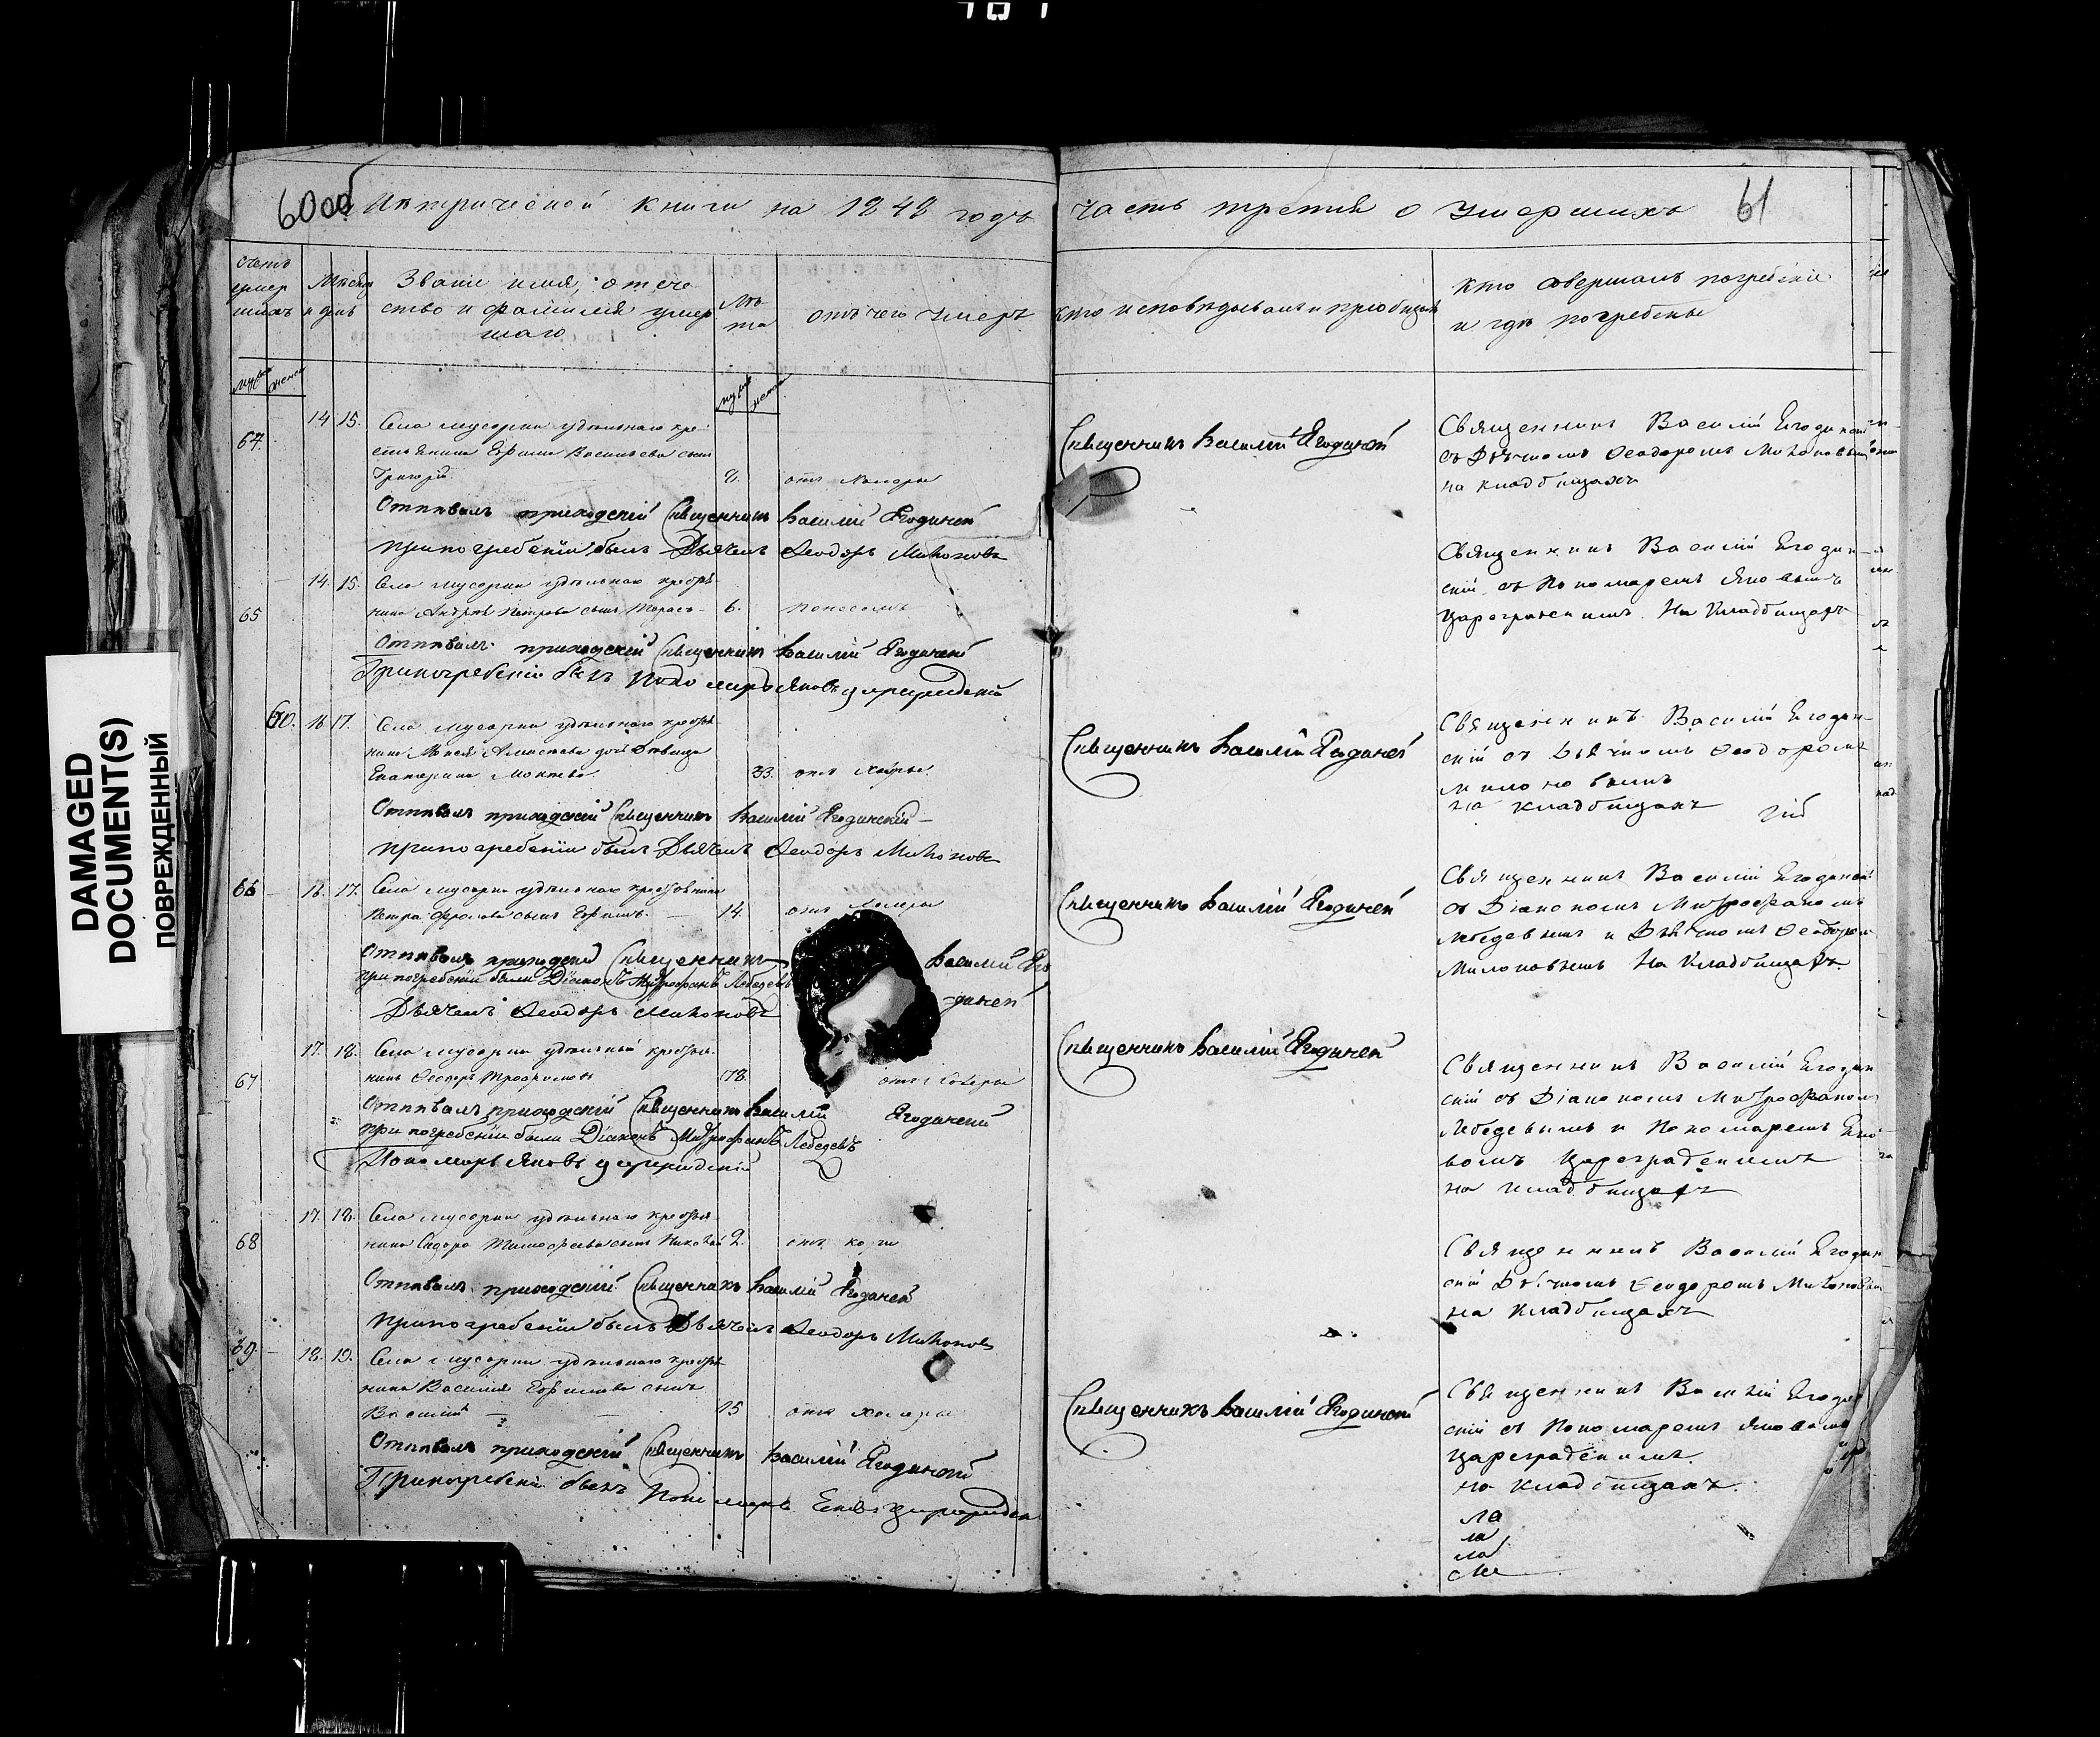 60 об
Метрической книги на 1848 годъ
часть третия о умершихъ
61
счетъ умер шихъ
Месяцъ и день
Звание имя, отече
ство и фамилия умер
шаго
Ле
та
отъ чего умеръ
кто исповедывалъ и приобщалъ
кто совершалъ погребение
и где погребены
муж женск
муж женск
64.
14 15.
Села Мусорки удельнаго кре
стьянина Ефима Васильева сынъ
Григорій
8.
отъ холеры
Отпевалъ приходскій Священникъ Василій Ягодинскій
при погребеніи былъ Дьячекъ Ѳеодоръ Милоновъ
Священникъ Василій Ягодинскій
Священникъ Василій Ягодинскій
съ Дьячкомъ Ѳеодоромъ Милоновымъ
на кладбищахъ
65
14. 15.
Села Мусорки удельнаго кресть
нина Андрея Петрова сынъ Тарасъ
6.
поносомъ
Отпевалъ приходскій Священникъ Василій Ягодинскій
При погребеніи былъ Пономарь Яковъ Цареградскій
Священникъ Василій Ягодин
скій съ Пономаремъ Яковымъ
Цареградскимъ На Кладбищахъ
60. 16 17.
Села Мусорки удельнаго кресть
Екатерина
33.
Отпевалъ приходскій Священникъ Василій Ягодинскій
при погребеніи былъ Дьячекъ Ѳеодоръ Милоновъ
Священникъ Василій Ягодинскій
Священникъ Василій Ягодин
скій съ Дьячкомъ Ѳеодоромъ
Милоновымъ
на кладбищахъ
66
16. 17.
Села Мусорки удельнаго крестьянина
Петра Фролова сынъ Ефимъ
14.
отъ холеры
Отпевалъ приходскій Священникъ Василій Яго
при погребеніи были Діаконъ Митрофанъ Лебедевъ
динскій
Дьячекъ Ѳеодоръ Милоновъ
Священникъ Василій Ягодинскій
Священникъ Василій Ягодинскій
съ Діакономъ Митрофаномъ
Лебедевымъ и Дьячкомъ Ѳеодоромъ
Милоновымъ На Кладбищахъ
67
17. 18.
Села Мусорки удельный крестья
нинъ Ѳедоръ Трофимовъ
78.
отъ холеры
Отпевалъ приходскій Священникъ Василій Ягодинскій
при погребеніи были Діаконъ Митрофанъ Лебедевъ
Пономарь Яковъ Цареградскій
Священникъ Василій Ягодинскій
Священникъ Василій Ягодин
скій съ Діакономъ Митрофаномъ
Лебедевымъ и Пономаремъ Яко
вомъ Цареградскимъ
на кладбищахъ
68
17. 18.
Села Мусорки удельнаго крестья
нина Сидора Тимофеева сынъ Николай
2.
отъ кори
Отпевалъ приходскій Священникъ Василій Ягодинскій
при погребеніи былъ Дьячекъ Ѳеодоръ Милоновъ
Священникъ Василій Ягодин
скій Дьячкомъ Ѳеодоромъ Милоновымъ
на кладбищахъ
69.
18. 19.
Села Мусорки удельнаго кресть
нина Василия Ефимова сынъ
Василий
15
отъ холеры
Отпевалъ приходскій Священникъ Василій Ягодинскій
При погребеніи былъ Пономарь Яковъ Цареградскій
Священникъ Василій Ягодинскій
Священникъ Василій Ягодин
скій съ Пономаремъ Яковымъ
Цареградскимъ
на кладбищахъ.
DAMAGED
DOCUMENT(S)
ПОВРЕЖДЕННЫЙ